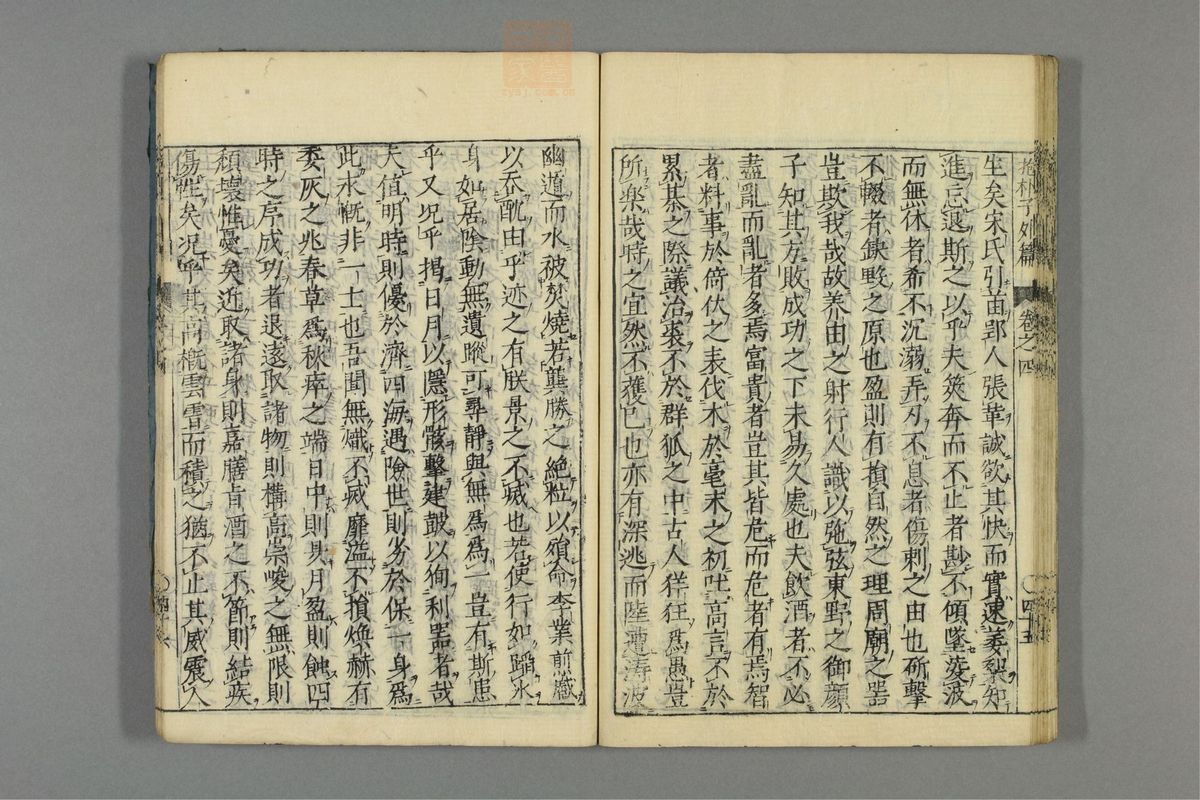 抱朴子外篇 卷之四 〇四十五
生矣宋氏引苗郢人張華誠欲其快而實速萎裂知
進忘退斯之以乎夫筴奔而不止者尠不傾墜淩波
而無休者希不沉溺弄刃不息者傷刺之由也斫擊
不輟者缺毀之原也盈則有損自然之理周廟之噐
豈欺我哉故養由之射行人識以弛弦東野之御顔
子知其方敗成功之下未易久處也夫飲酒者不必
盡亂而亂者多焉富貴者豈其皆危而危者有焉智
者料事於倚伏之表伐木於毫末之初吐高言不於
累棊之際議治裘不於群狐之中古人佯狂爲愚豈
所樂哉時之宜然不獲已也亦有深逃而陸遭濤波
幽遁而水被焚燒若龔勝之絶粒以殞命李業煎蹙
以吞酖由乎迹之有朕景之不滅也若使行如蹈氷
身如居陰動無遺蹤可尋靜與無爲爲一豈有斯患
乎又况乎揭日月以隱形骸擊建皷以徇利噐者哉
夫値明時則優於濟四海遇險世則劣於保一身爲
此永慨非一士也吾聞無熾不滅靡溢不損煥赫有
委灰之兆春草爲秋瘁之端日中則昃月盈則蝕四
時之序成功者退遠取諸物則構高崇峻之無限則
頹壞惟憂矣近取諸身則嘉膳旨酒之不節則結疾
傷性矣况乎其高槪雲霄而積之猶不止其威震人